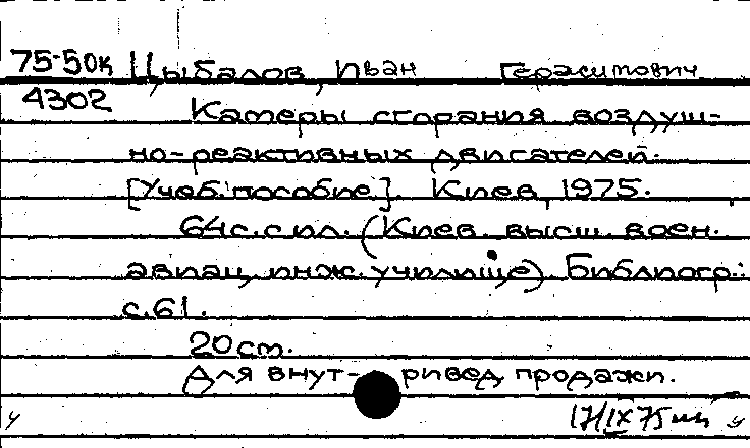 75-50к Цыбалов, Иван Герасимович
4302 Камеры сгорания воздуш-
но-реактивных двигателей.
[Учеб. пособие]. Киев, 1975.
64с. с ил. (Киев. высш. воен.
авиац. инж. училище). Библиогр.:
с. 61.
20 см.
Для внут- ривед. продажи.
17/IX 75